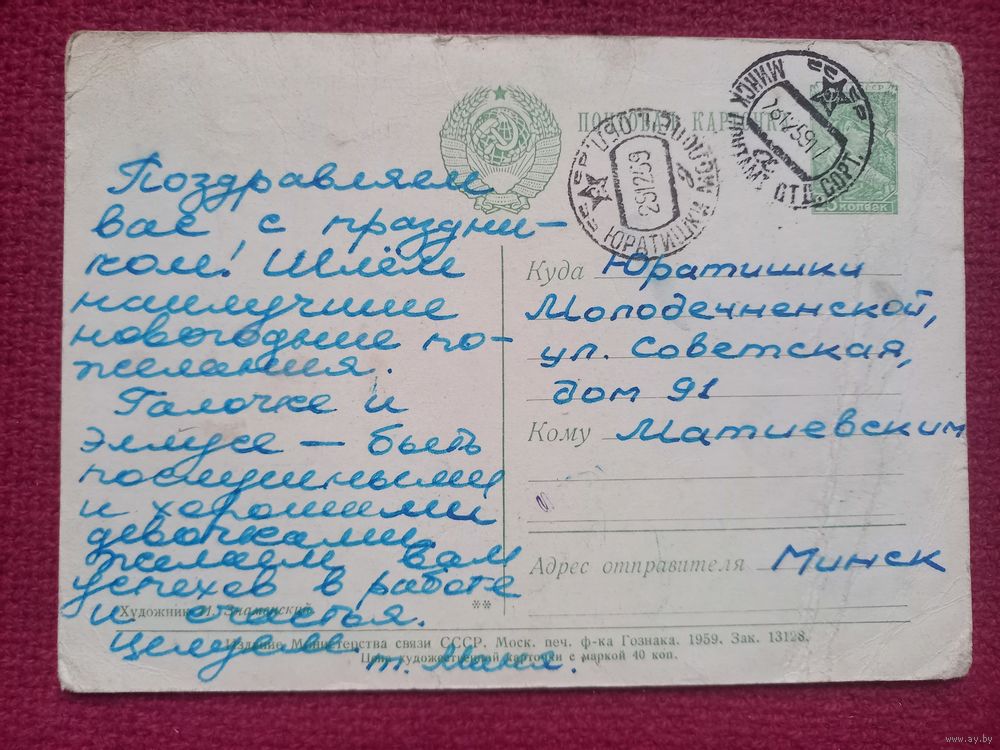 ПОЧТОВАЯ КАРТОЧКА
МИНСК ПОЧТАМТ ОТД. СОРТ.
ЮРАТИШКИ МОЛОДЕЧ. ОБЛ.
КОПЕЕК
Поздравляем
вас с праздни-
ком! Шлём
наилучшие
новогодние по-
желания.
Галочке и
Эллусе — быть
послушными
и хорошими
девочками.
Желаем вам
успехов в работе
и счастья.
Целуем.
т. Маня.
Куда Юратишки
Молодечненской,
ул. Советская,
дом 91
Кому Матиевским
Адрес отправителя Минск
Художник И. Знаменский
**
Издание Министерства связи СССР. Моск. печ. ф-ка Гознака. 1959. Зак. 13128.
Цена художественной карточки с маркой 40 коп.
www.ay.by